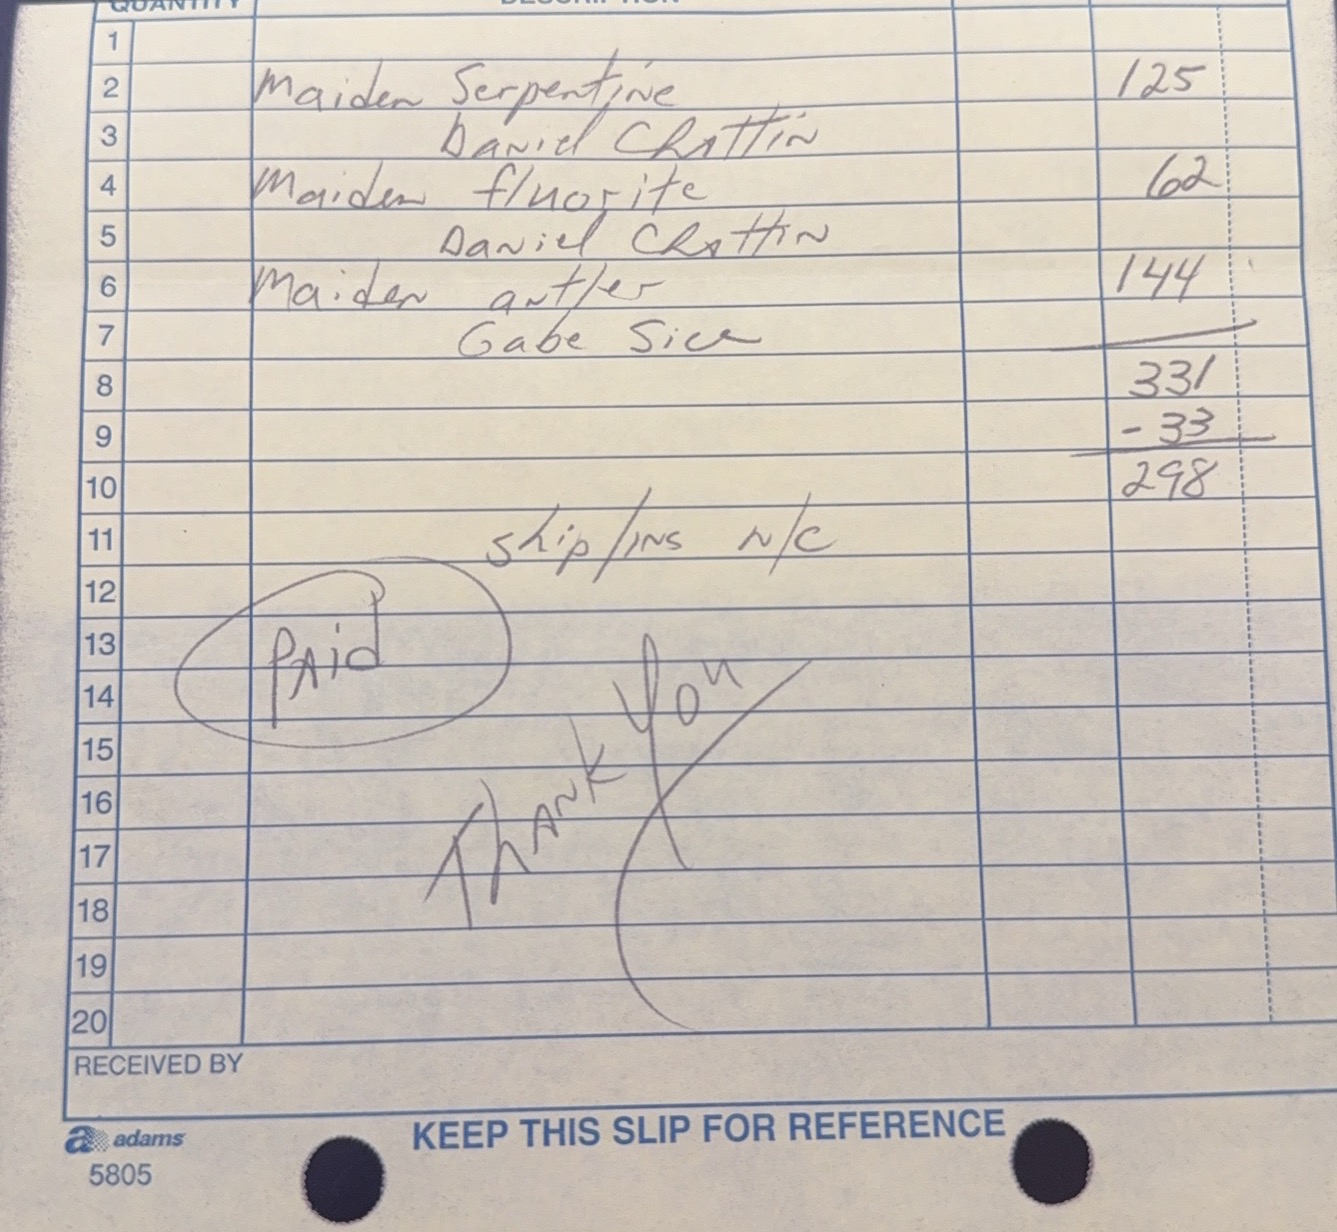 QUANTITY DESCRIPTION
1
2 Maiden Serpentine 125
3 Daniel Chattin
4 Maiden fluorite 62
5 Daniel Chattin
6 Maiden antler 144
7 Gabe Sice
8 331
9 - 33
10 298
11 ship/ins n/c
12
13 PAid
14
15
16
17
18
19
20
Thank You
RECEIVED BY
adams KEEP THIS SLIP FOR REFERENCE
5805